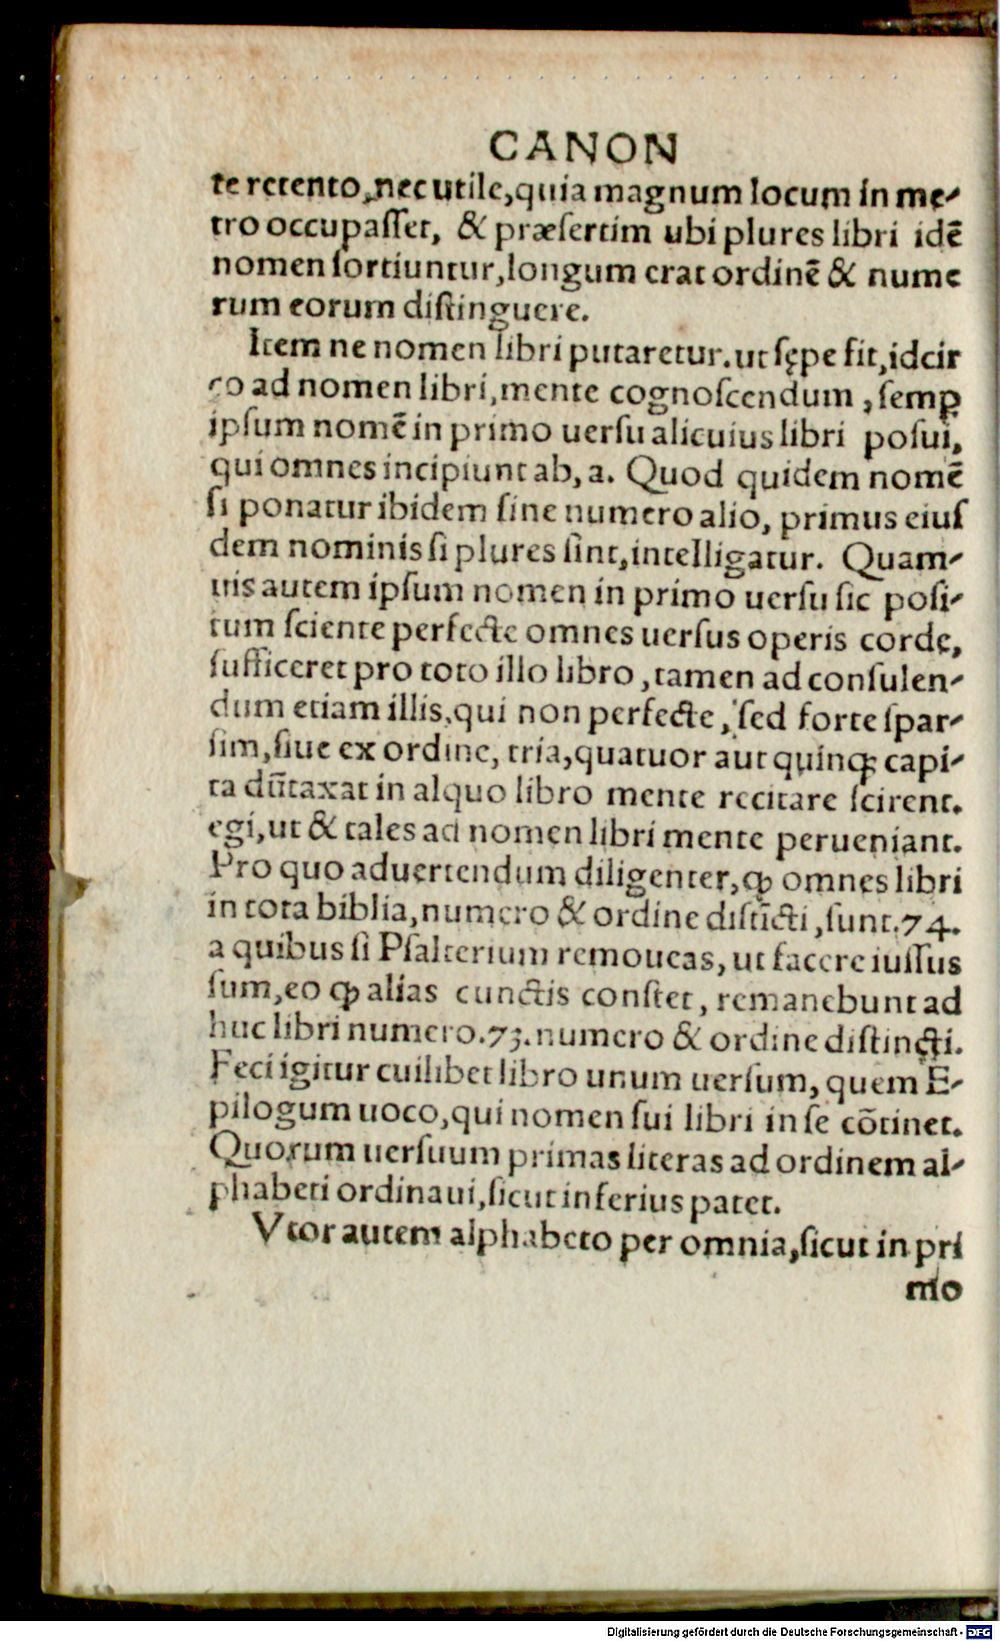 CANON
te retento, nec utile, quia magnum locum in me-
tro occupaſſet, & præſertim ubi plures libri idē
nomen ſortiuntur, longum erat ordinē & nume
rum eorum diſtinguere.
Item ne nomen libri putaretur. ut ſępe fit, idcir
co ad nomen libri, mente cognoſcendum, ſemꝑ
ipſum nomē in primo uerſu alicuius libri poſui,
qui omnes incipiunt ab, a. Quod quidem nomē
ſi ponatur ibidem ſine numero alio, primus eiuſ
dem nominis ſi plures ſint, intelligatur. Quam-
uis autem ipſum nomen in primo uerſu ſic poſi-
tum ſciente perfecte omnes uerſus operis corde,
ſufficeret pro toto illo libro, tamen ad conſulen-
dum etiam illis, qui non perfecte, ſed forte ſpar-
ſim, ſiue ex ordine, tria, quatuor aut quinqꝫ capi-
ta dūtaxat in alquo libro mente recitare ſcirent.
egi, ut & tales ad nomen libri mente perueniant.
Pro quo aduertendum diligenter, ꝙ omnes libri
in tota biblia, numero & ordine diſtīcti, ſunt. 74.
a quibus ſi Pſalterium remoueas, ut facere iuſſus
ſum, eo ꝙ alias cunctis conſtet, remanebunt ad
huc libri numero. 73. numero & ordine diſtincti.
Feci igitur cuilibet libro unum uerſum, quem E-
pilogum uoco, qui nomen ſui libri in ſe cōtinet.
Quorum uerſuum primas literas ad ordinem al-
phabeti ordinaui, ſicut inferius patet.
Vtor autem alphabeto per omnia, ſicut in pri
mo
Digitalisierung gefördert durch die Deutsche Forschungsgemeinschaft - DFG